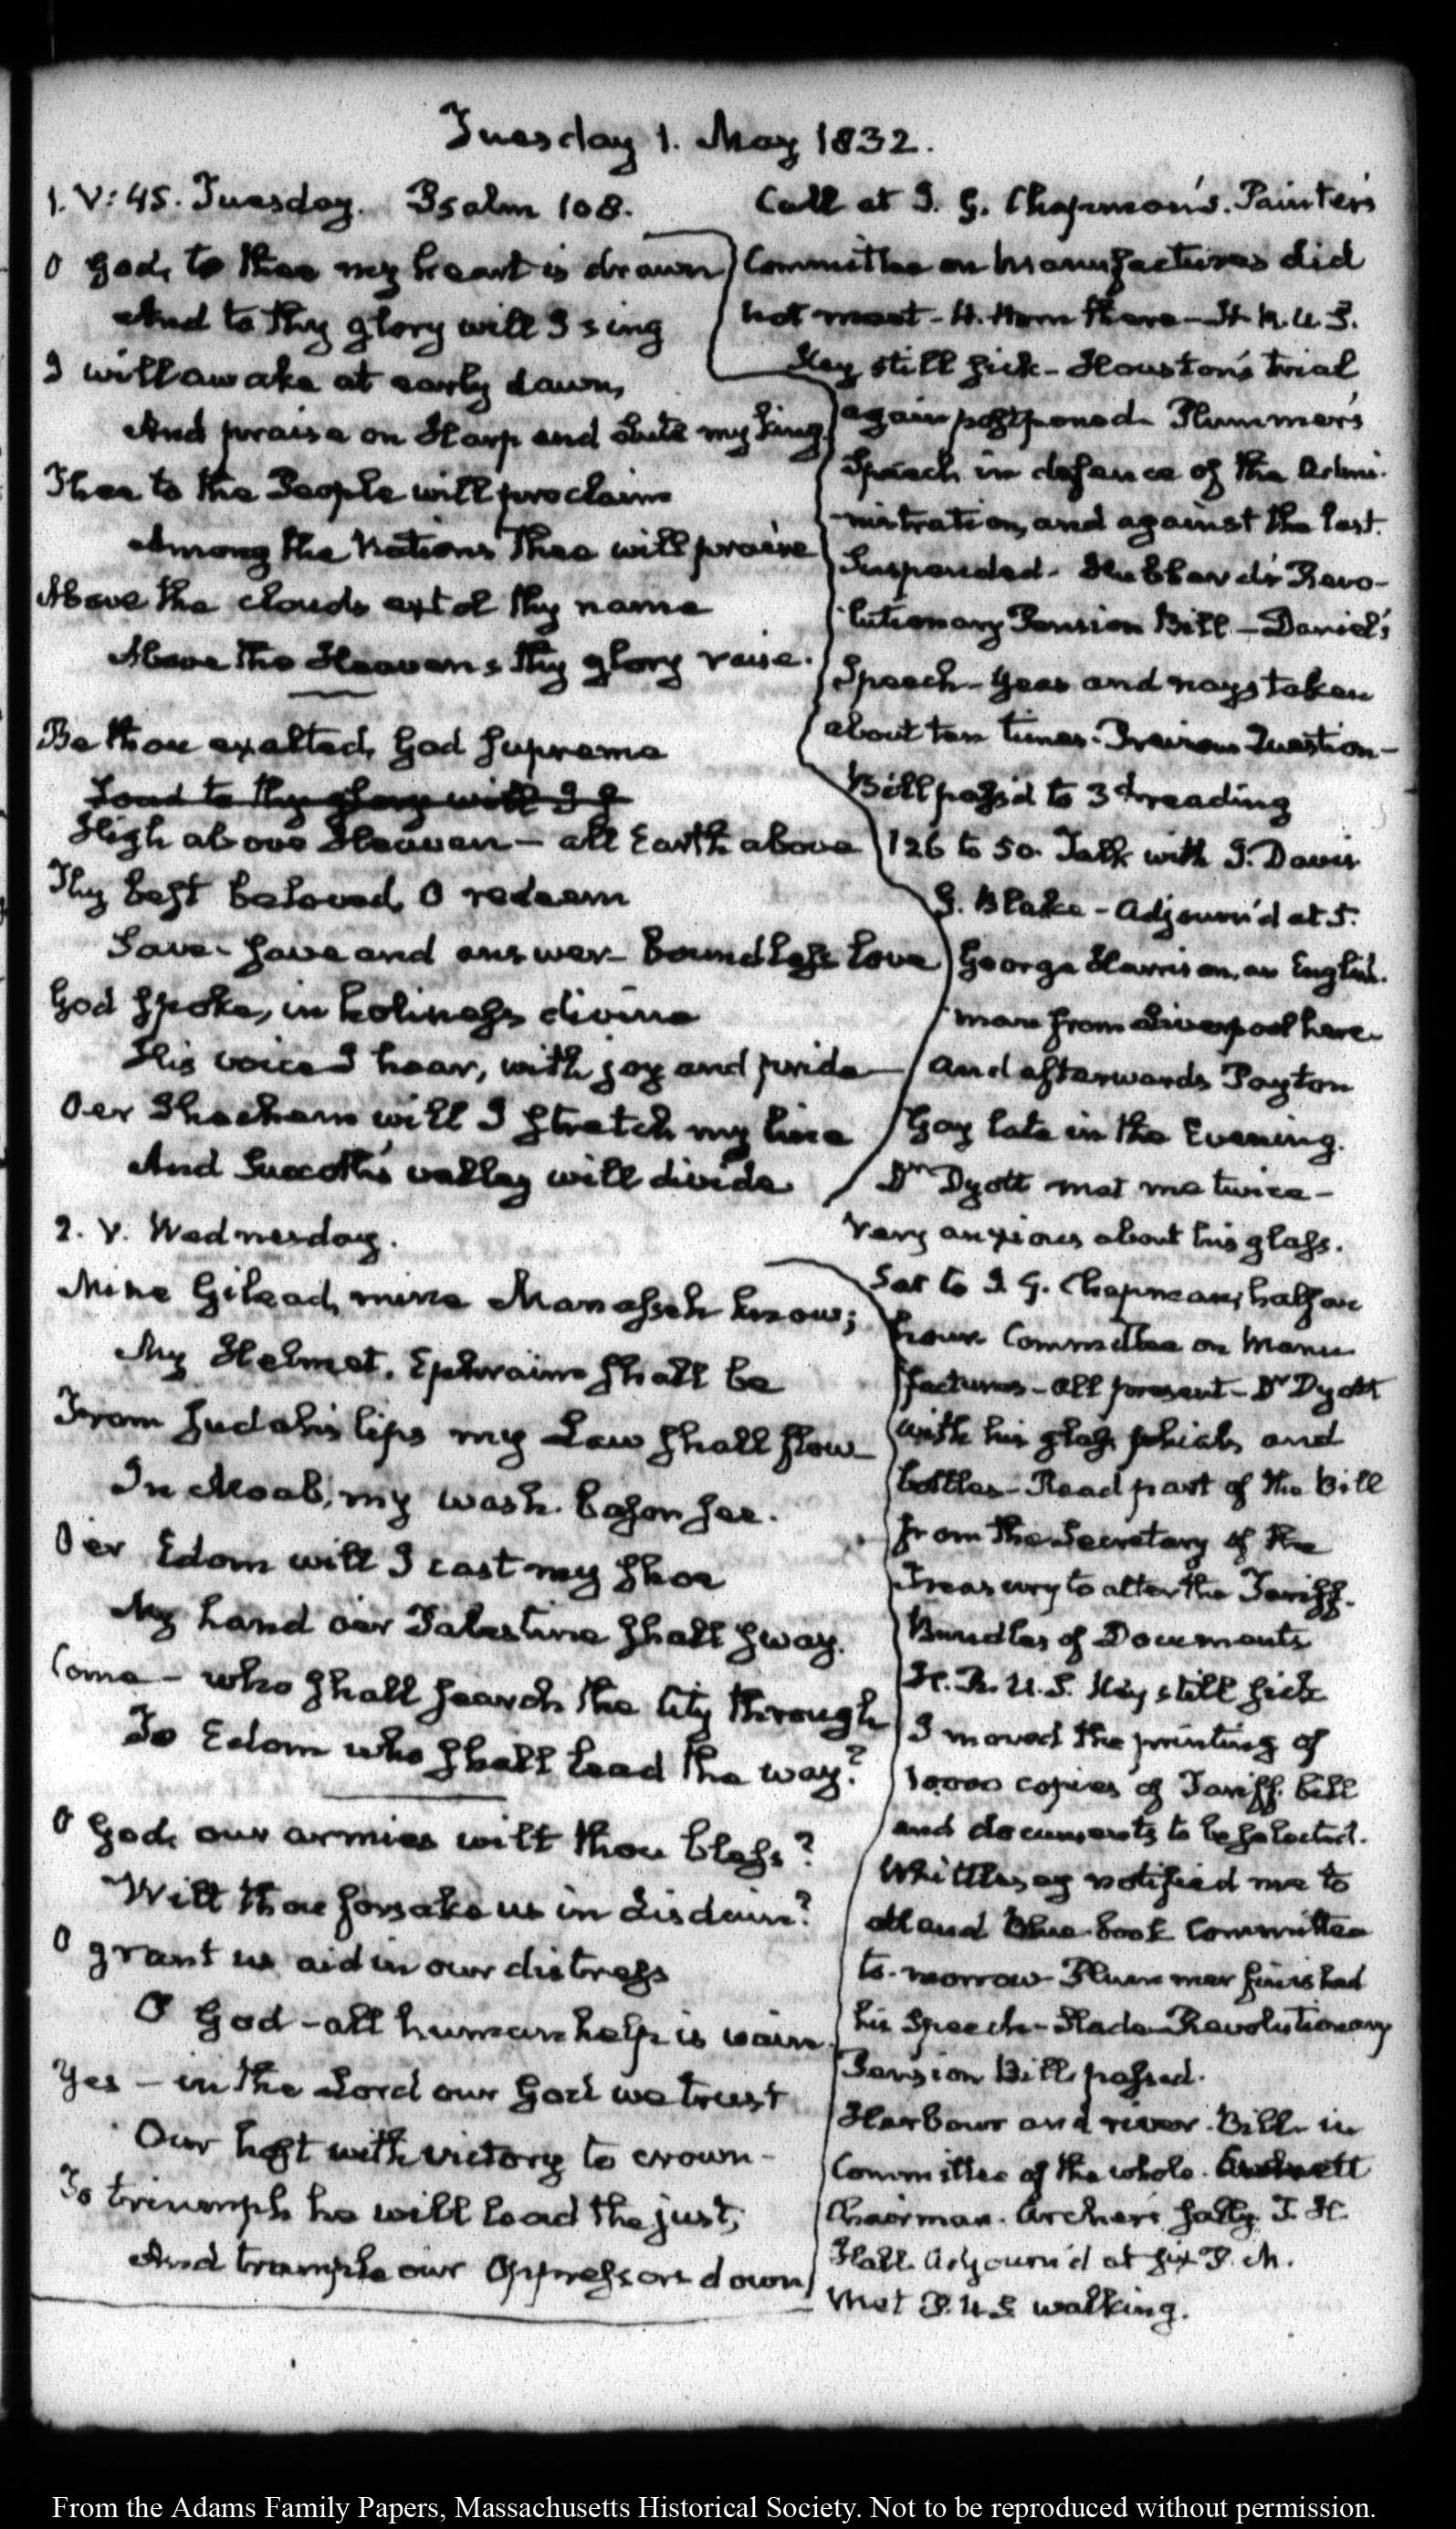 Tuesday 1. May 1832.
1. V: 45. Tuesday. Psalm 108.
O God, to thee my heart is drawn
And to thy glory will I sing
I will awake at early dawn,
And praise on Harp and Lute my King.
Thee to the People will proclaim
Among the Nations Thee will praise
Above the clouds extol thy name
Above the Heavens thy glory raise.
Be thou exalted, God Supreme
Loud to thy glory will I s
High above Heaven - all Earth above
Thy best beloved, O redeem
Save - save and answer - boundless love
God spoke, in holiness divine
His voice I hear, with joy and pride
Oer Shechem will I stretch my line
And Succoth's valley will divide
Call at J. G. Chapman's. Painter's
Committee on Manufactures did
not meet - H. Horn there - H. R. U. S.
Key still sick - Houston's trial
again postponed - Plummer's
Speech in defence of the Admi-
nistration, and against the last.
Suspended - Hubbard's Revo-
lutionary Pension Bill - Daniel's
Speech - Yeas and nays taken
about ten times. Previous Question -
Bill pass'd to 3d reading
126 to 50. Talk with J. Davis
G. Blake - Adjourn'd at 5.
George Harrison, an English-
man from Liverpool here
And afterwards Payton
Gay late in the Evening.
Dr Dyott met me twice -
very anxious about his glass.
2. V. Wednesday.
Mine Gilead, mine Manasseh know;
My Helmet, Ephraim shall be
From Judah's lips my Law shall flow
In Moab, my wash-bason see.
Oer Edom will I cast my shoe
My hand o'er Palestine shall sway.
Come - who shall search the City through
To Edom who shall lead the way?
O God, our armies wilt thou bless?
Wilt thou forsake us in disdain?
O grant us aid in our distress
O God - all human help is vain.
Yes - in the Lord our God we trust
Our host with victory to crown -
To triumph he will lead the just,
And trample our Oppressors down
Sat to J. G. Chapman, half an
hour Committee on Manu
factures - all present - Dr Dyott
with his glass phials and
bottles - Read part of the Bill
from the Secretary of the
Treasury to alter the Tariff.
Bundles of Documents
H. R. U. S. Key still sick
I moved the printing of
10,000 copies of Tariff bill
and documents to be selected.
Whittlesey notified me to
attend Blue-book Committee
to-morrow - Plummer finished
his Speech - Slade - Revolutionary
Pension Bill passed.
Harbour and river Bill - in
Committee of the whole.
Chairman. Archer's sally. T. H.
Hall. Adjourn'd at six P. M.
Met P. U. S walking.
From the Adams Family Papers, Massachusetts Historical Society. Not to be reproduced without permission.